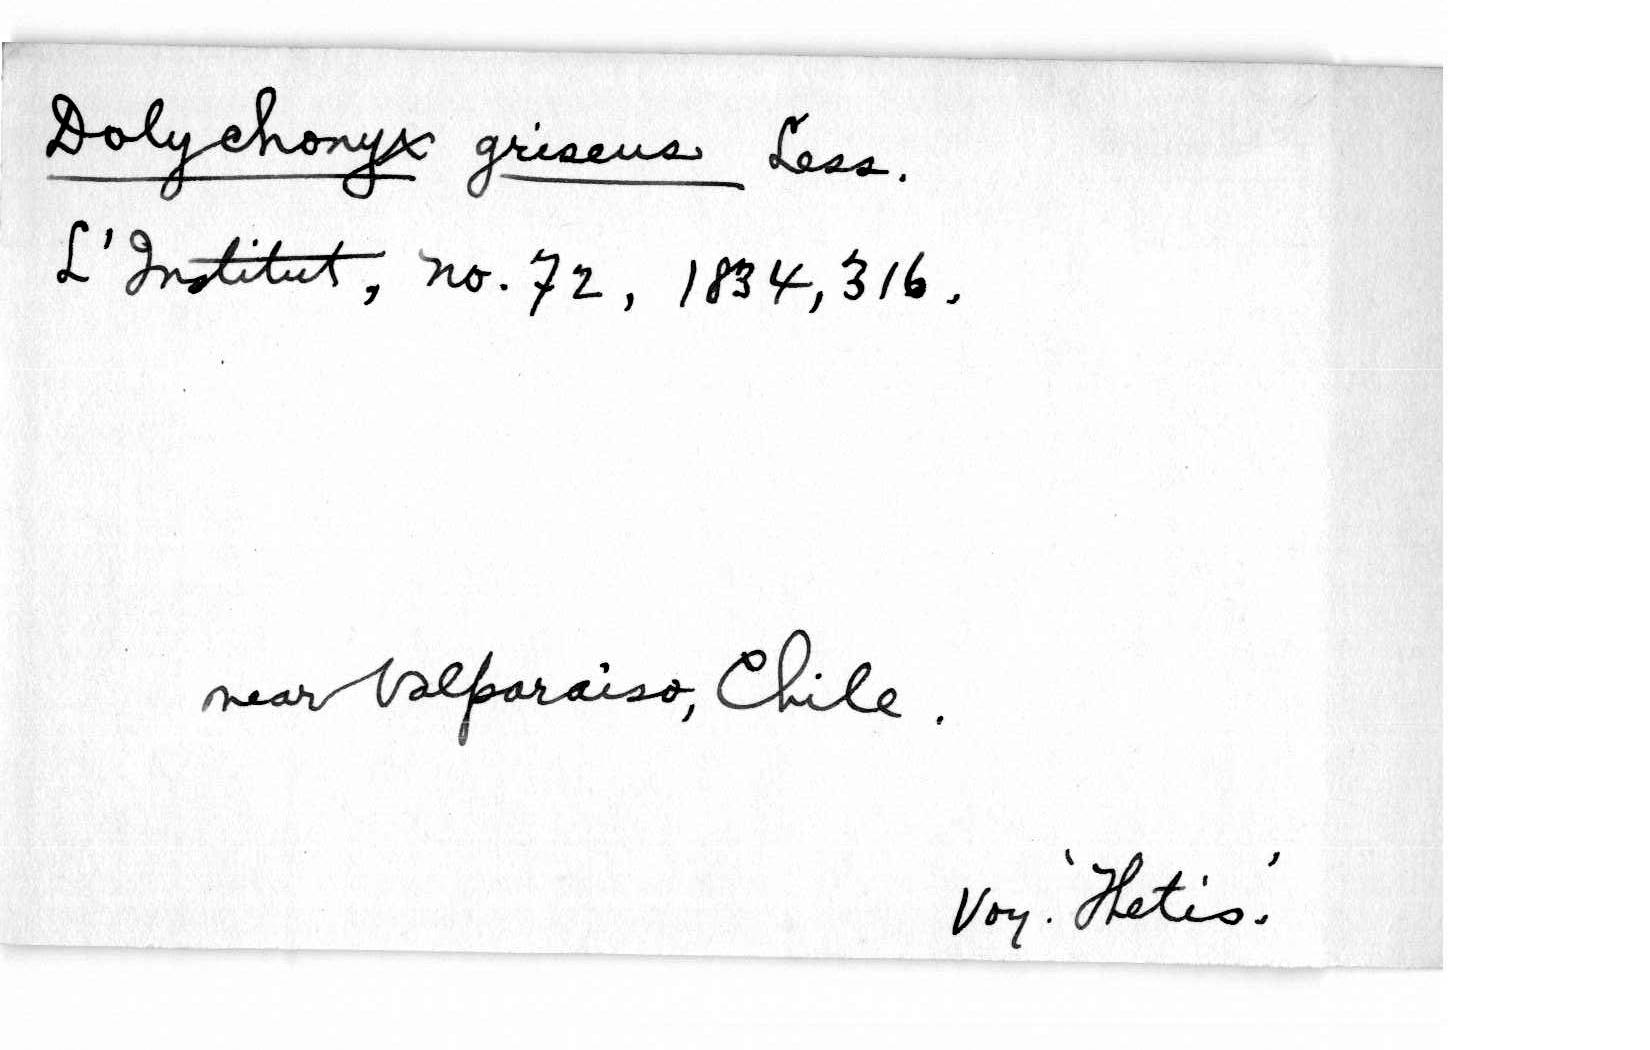 Dolychonyx griseus Less.
L'Institut, no. 72, 1834, 316.
near Valparaiso, Chile.
Voy. 'Thetis.'